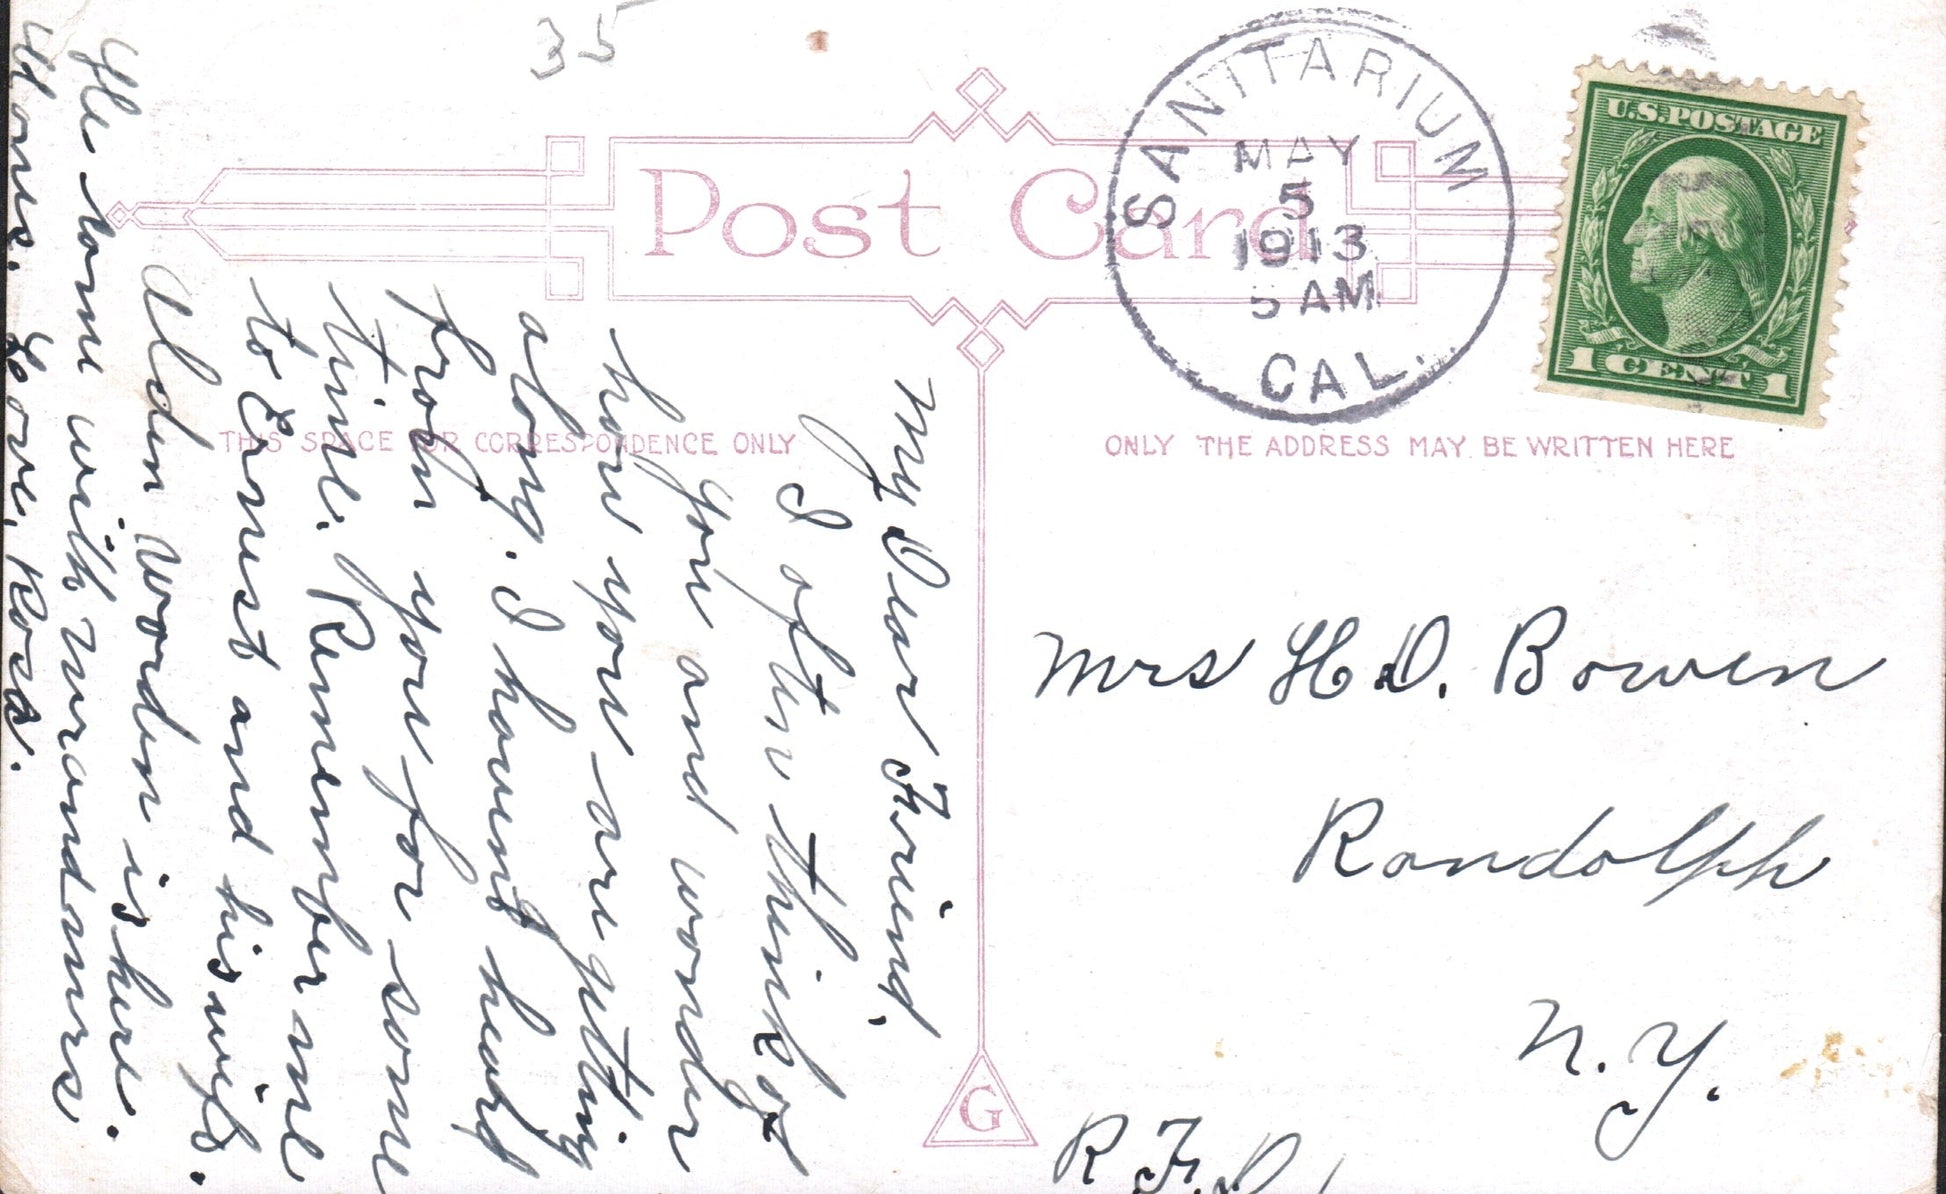 35
Post Card
SANITARIUM
MAY
5
1913
5 AM
CAL.
U.S. POSTAGE
1 CENT 1
THIS SPACE FOR CORRESPONDENCE ONLY
ONLY THE ADDRESS MAY BE WRITTEN HERE
My Dear Friend,
I often think of
you and wonder
how you are getting
along. I havent heard
from you for some
time. Remember me
to Ernest and his wife.
Alden Worden is here.
He came with
Love, Rosa.
Mrs H.D. Bowen
Randolph
N.Y.
R.F.D. 1
G